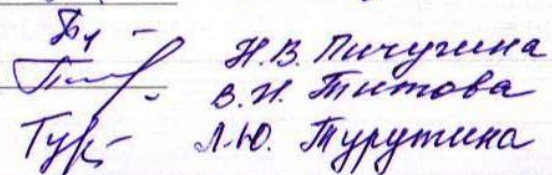 Н.В. Пичугина
В.Н. Титова
Л.Ю. Турутина